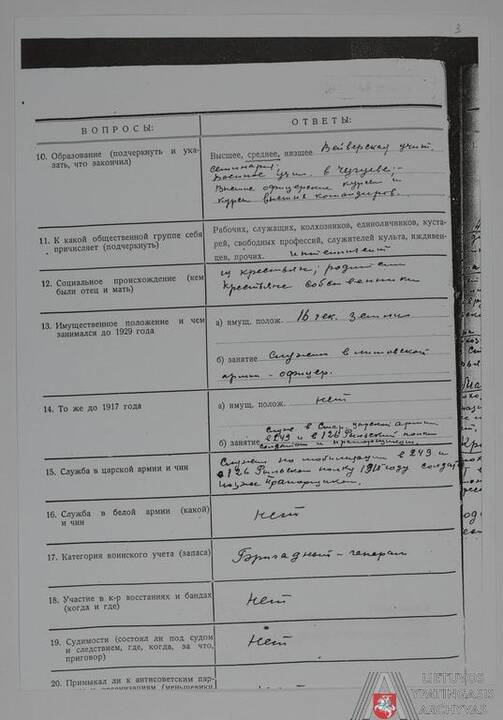 3
ВОПРОСЫ:
ОТВЕТЫ:
10. Образование (подчеркнуть и ука-
зать, что закончил)
Высшее, среднее, низшее Вейверская учит.
семинария;
Военное учил. в Чугуеве;
Высшие офицерские курсы и
курсы высших командиров.
11. К какой общественной группе себя
причисляет (подчеркнуть)
Рабочих, служащих, колхозников, единоличников, куста-
рей, свободных профессий, служителей культа, иждивен-
цев, прочих. Интеллигент
12. Социальное происхождение (кем
были отец и мать)
из крестьян; родители
крестьяне собственники
13. Имущественное положение и чем
занимался до 1929 года
а) имущ. полож. 16 гек. земли
б) занятие Служил в литовской
армии - офицер.
14. То же до 1917 года
а) имущ. полож. нет
служ. в стар. царской армии
в 249 и в 126 Рыльский полки
б) занятие солдатом и прапорщиком
15. Служба в царской армии и чин
Служил по мобилизации в 249 и
в 126 Рыльском полку 1915 году солдат
позже прапорщиком.
16. Служба в белой армии (какой)
и чин
нет
17. Категория воинского учета (запаса)
Бригадный - генерал
18. Участие в к-р восстаниях и бандах
(когда и где)
Нет
19. Судимости (состоял ли под судом
и следствием, где, когда, за что,
приговор)
Нет
20. Примыкал ли к антисоветским пар-
тиям и организациям (меньшевики
LIETUVOS
YPATINGASIS
ARCHYVAS